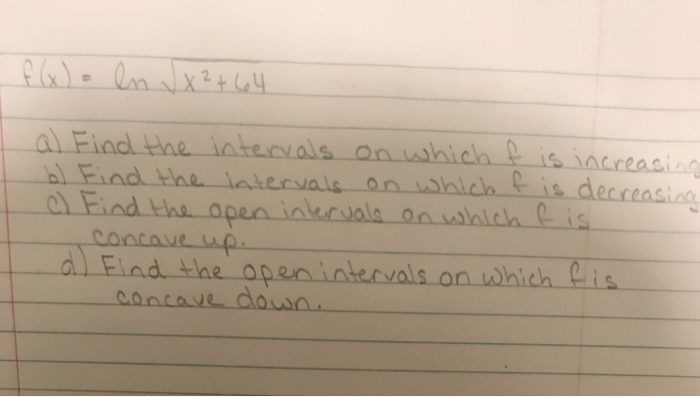 f(x) = ln √x²+64
a) Find the intervals on which f is increasing
b) Find the intervals on which f is decreasing
c) Find the open intervals on which f is
concave up.
d) Find the open intervals on which f is
concave down.